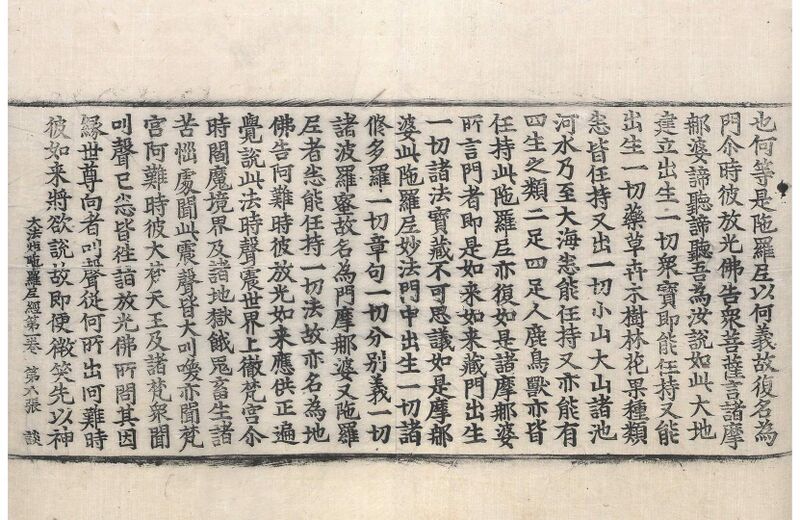 也何等是陁羅尼以何義故復名為
門尒時彼放光佛告衆菩薩言諸摩
那婆諦聽諦聽吾為汝說如此大地
建立出生一切衆寶即能任持又能
出生一切藥草卉木樹林花果種類
悉皆任持又出一切小山大山諸池
河水乃至大海悉能任持又亦能有
四生之類二足四足人鹿鳥獸亦皆
任持此陁羅尼亦復如是諸摩那婆
所言門者即是如来如来藏門出生
一切諸法寶藏不可思議如是摩那
婆此陁羅尼妙法門中出生一切諸
修多羅一切章句一切分別義一切
諸波羅蜜故名為門摩那婆又陁羅
尼者悉能任持一切法故亦名為地
佛告阿難時彼放光如来應供正遍
覺說此法時聲震世界上徹梵宮尒
時閻魔境界及諸地獄餓鬼畜生諸
苦惱處聞此震聲皆大叫喚亦聞梵
宮阿難時彼大梵天王及諸梵衆聞
叫聲已悉皆往詣放光佛所問其因
緣世尊向者叫聲從何所出何難時
彼如来將欲說故即便微笑先以神
大法炬陁羅尼經第一卷 第六張 談